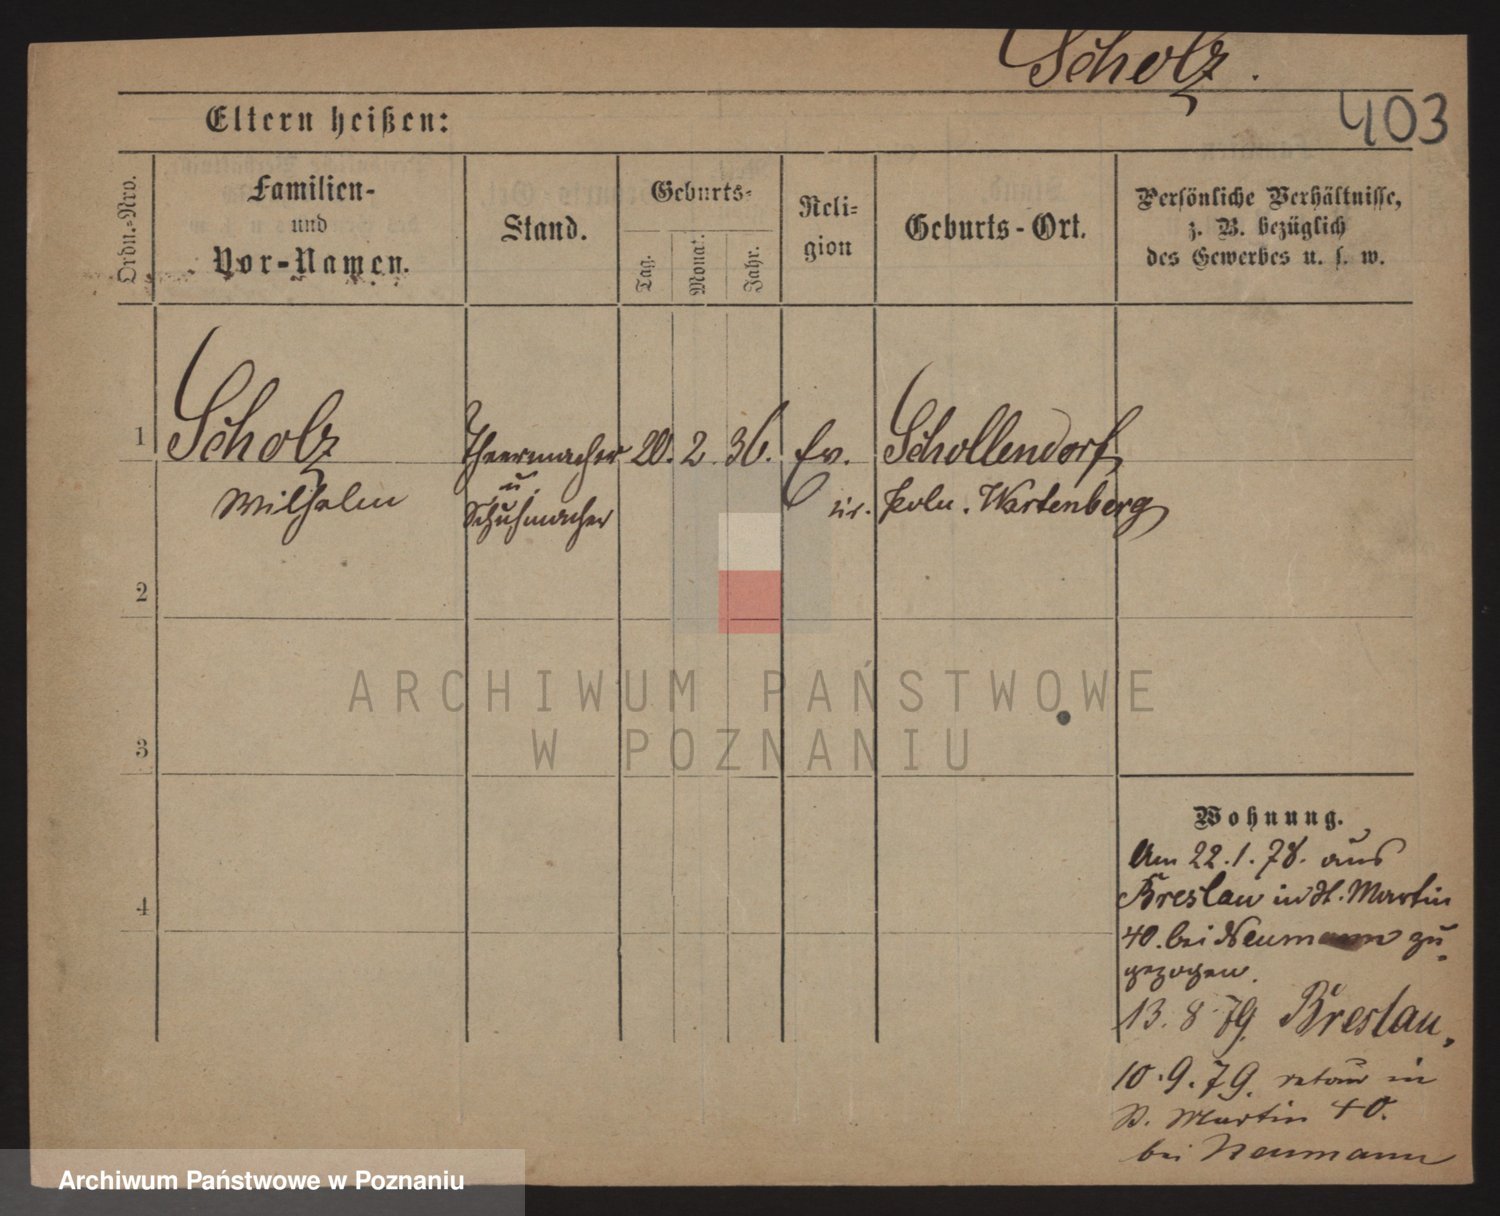 Scholz.
403
Eltern heißen:
Ordn.-Nro.
Familien-
und
Vor-Namen.
Stand.
Geburts-
Tag.
Monat.
Jahr.
Reli-
gion
Geburts-Ort.
Persönliche Verhältnisse,
z. B. bezüglich
des Gewerbes u. s. w.
1
Scholz
Wilhelm
Theermacher
u.
Schuhmacher
20. 2. 36. Ev.
Schollendorf
Poln. Wartenberg
2
3
4
ARCHIWUM PAŃSTWOWE
W POZNANIU
Wohnung.
Am 22.1.78. aus
Breslau in St. Martin
40. bei Neumann zu-
gezogen.
13. 8 79. Breslau.
10. 9. 79. retour in
St. Martin 40.
bei Neumann
Archiwum Państwowe w Poznaniu